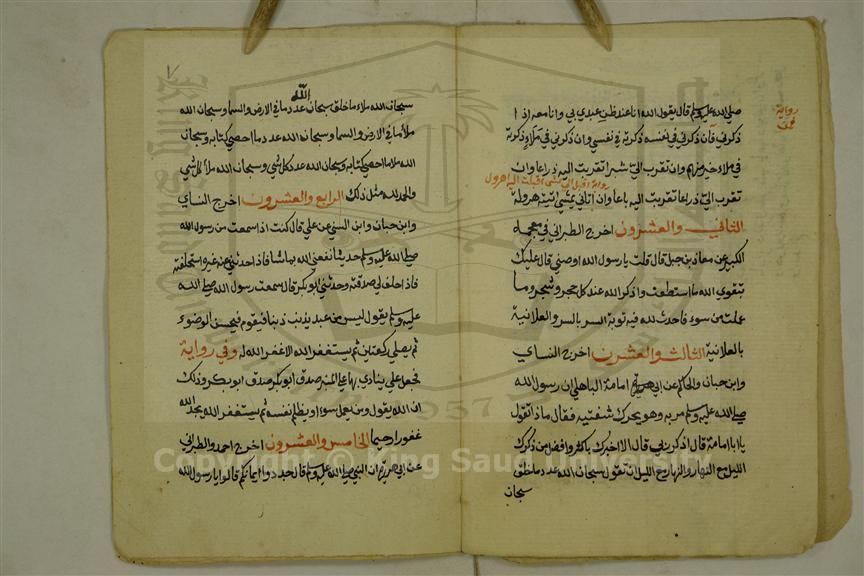 صلى الله عليه وسلم قال يقول الله انا عند ظن عبدي بي وانا معه اذا
ذكرني فان ذكرني في نفسه ذكرته في نفسي وان ذكرني في ملاء ذكرته
في ملاء خير منهم وان تقرب الي شبرا تقربت اليه ذراعا وان
رواية اقبل الي يمشي اقبلت اليه اهرول
تقرب الي ذراعا تقربت اليه باعا وان اتاني يمشي اتيته هرولة
الثاني والعشرون اخرج الطبراني في معجمه
الكبير عن معاذ بن جبل قال قلت يا رسول الله اوصني قال عليك
بتقوي الله ما استطعت واذكر الله عند كل حجر وشجر وما
عملت من سوء فاحدث لله فيه توبة السر بالسر والعلانية
بالعلانية الثالث والعشرن اخرج النساي
وابن حبان والحاكم عن ابي امامة الباهلي ان رسول الله
صلى الله عليه وسلم مر به وهو يحرك شفتيه فقال ماذا تقول
يا ابا امامة قال اذكر ربي قال الا اخبرك باكثر وافضل من ذكرك
الليل مع النهار والنهار مع الليل ان تقول سبحان الله عدد ما خلق
سبحان
رواية
الله
سبحان الله ملاء ما خلق سبحان عدد ما في الارض والسما وسبحان الله
ملأ ما في الارض والسما وسبحان الله عدد ما احصي كتابه وسبحان
الله ملا ما احصي كتابه وسبحان الله عدد كل شي وسبحان الله ملأ كل شي
والحمد لله مثل ذلك الرابع والعشرون اخرج النساي
وابن حبان وابن السني عن علي قال كنت اذا سمعت من رسول الله
صلى الله عليه وسلم حديثا نفعني الله بما شا فاذا حدثني عنه غيره استحلفته
فاذا حلف لي صدقته وحدثني ابو بكر قال سمعت رسول الله صلى الله
عليه وسلم يقول ليس من عبد يذنب ذنبا فيقوم فيحسن الوضوء
ثم يصلي ركعتين ثم يستغفر الله الا غفر الله له وفي رواية
فجعل علي ينادي بها علي المنبر صدق ابو بكر صدق ابو بكر وذلك
ان الله يقول ومن يعمل سوءا او يظلم نفسه ثم يستغفر الله يجد الله
غفورا رحيما الخامس والعشرون اخرج احمد والطبراني
عن ابي هريرة ان النبي صلى الله عليه وسلم قال جددوا ايمانكم قالوا يا رسول الله
Copyright © King Saud University
1957